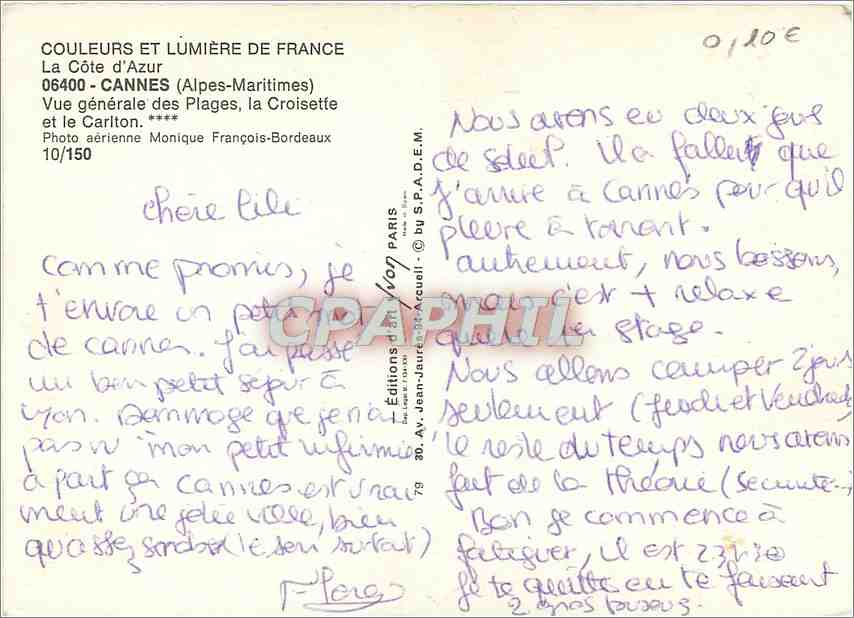 COULEURS ET LUMIÈRE DE FRANCE
La Côte d'Azur
06400 - CANNES (Alpes-Maritimes)
Vue générale des Plages, la Croisette
et le Carlton. ****
Photo aérienne Monique François-Bordeaux
10/150
chère lili
Comme promis, je
t'envoie un petit mot
de cannes. J'ai passé
un bon petit séjour à
Lyon. Dommage que je n'ai
pas vu "mon petit infirmier
à part ça cannes est vrai
ment une jolie ville, bien
qu'assez (le soir surtout)
Editions d'art Yvon PARIS
Made in Spain
79 30, Av. Jean-Jaurès-94-Arcueil - © by S.P.A.D.E.M.
0,10€
Nous avons eu deux jours
de soleil. Il a fallu que
j'arrive à Cannes pour qu'il
pleuve à torrent.
autrement, nous bossons,
mais c'est + relaxe
qu'en stage.
Nous allons camper 2 jours
seulement (jeudi et vendredi)
le reste du temps nous avons
fait de la théorie (sécurité...)
Bon je commence à
fatiguer, il est 23h30
Je te quitte en te faisant
2 gros bisous.
CPAPHIL